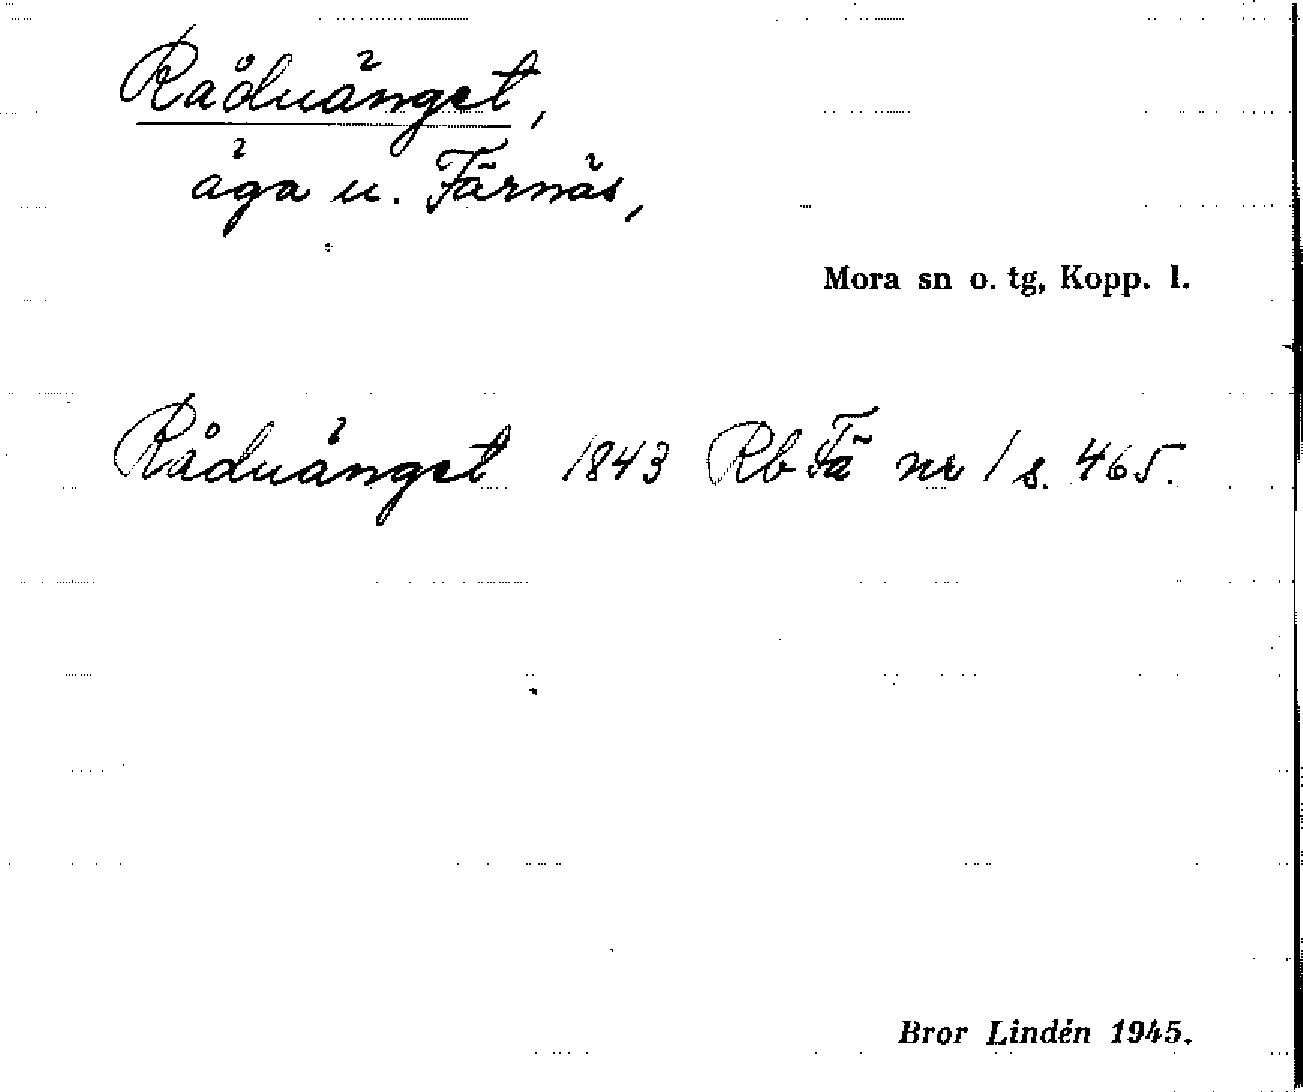 Råduänget,
äga u. Färnäs,
Mora sn o. tg, Kopp. l.
Råduänget 1843 Rb Fä nr 1 s. 465.
Bror Lindén 1945.